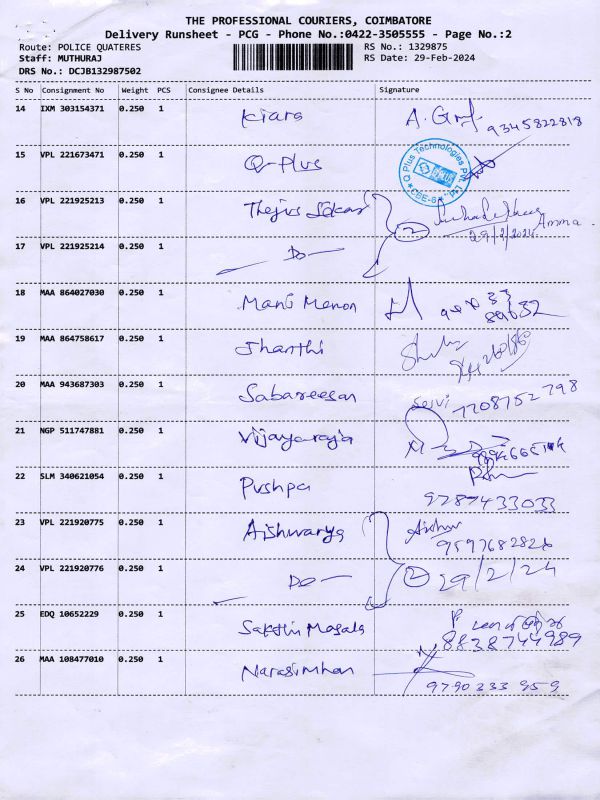 THE PROFESSIONAL COURIERS, COIMBATORE
Delivery Runsheet - PCG - Phone No.:0422-3505555 - Page No.:2
Route: POLICE QUATERES
RS No.: 1329875
Staff: MUTHURAJ
RS Date: 29-Feb-2024
DRS No.: DCJB132987502
S No Consignment No Weight PCS Consignee Details Signature
14 IXM 303154371 0.250 1 Kiara A. 9345822818
15 VPL 221673471 0.250 1 Q-Plus Q Plus Technologies Pvt. Ltd. CBE-6
16 VPL 221925213 0.250 1 Thejus Sekar Amma
2 29/2/2024
17 VPL 221925214 0.250 1 — Do —
18 MAA 864027030 0.250 1 Mani Menon
19 MAA 864758617 0.250 1 Shanthi
20 MAA 943687303 0.250 1 Sabareesan Selvi 7708752798
21 NGP 511747881 0.250 1 Vijayaraja
22 SLM 340621054 0.250 1 Pushpa
9787433033
23 VPL 221920775 0.250 1 Aishwarya Aishw
9597682826
24 VPL 221920776 0.250 1 — Do — 2 29/2/24
25 EDQ 10652229 0.250 1 Sakthi Masala
8838744989
26 MAA 108477010 0.250 1 Narasimhan
9790333959